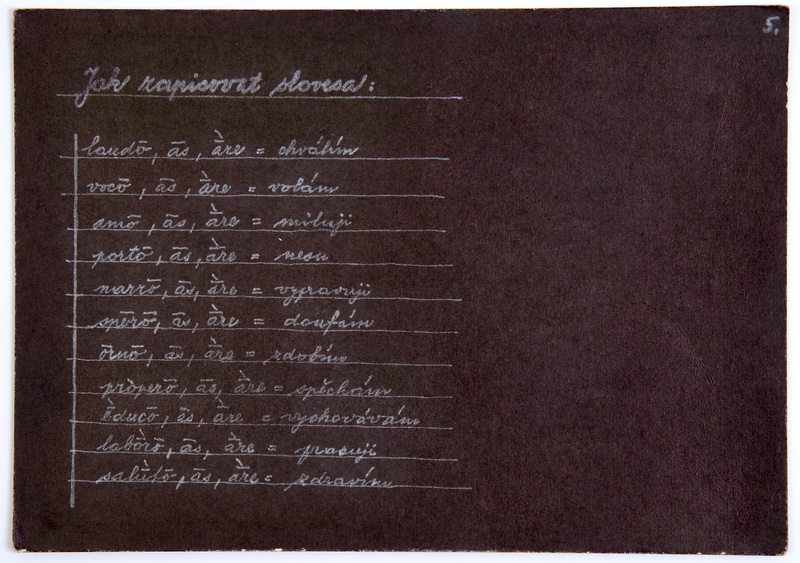 5.
Jak zapisovat slovesa:
laudō, ās, āre = chválím
vocō, ās, āre = volám
amō, ās, āre = miluji
portō, ās, āre = nesu
narrō, ās, āre = vypravuji
spērō, ās, āre = doufám
ōrnō, ās, āre = zdobím
pròperō, ās, āre = spěchám
ēducō, ās, āre = vychovávám
labōrō, ās, āre = pracuji
salūtō, ās, āre = zdravím